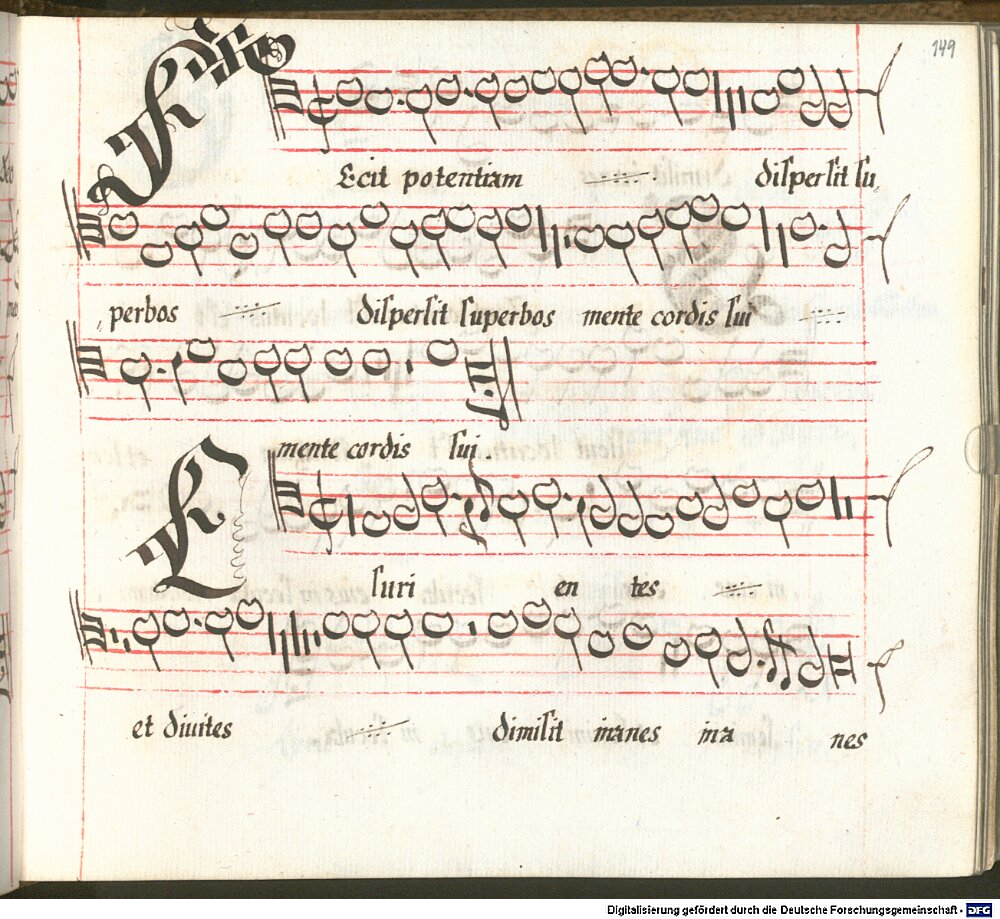 149
Fecit potentiam ·//· dispersit su,
,perbos ·//· dispersit superbos mente cordis sui ·//·
mente cordis sui.
Esuri en tes ·//·
et diuites ·//· dimisit inanes ina nes
Digitalisierung gefördert durch die Deutsche Forschungsgemeinschaft - DFG